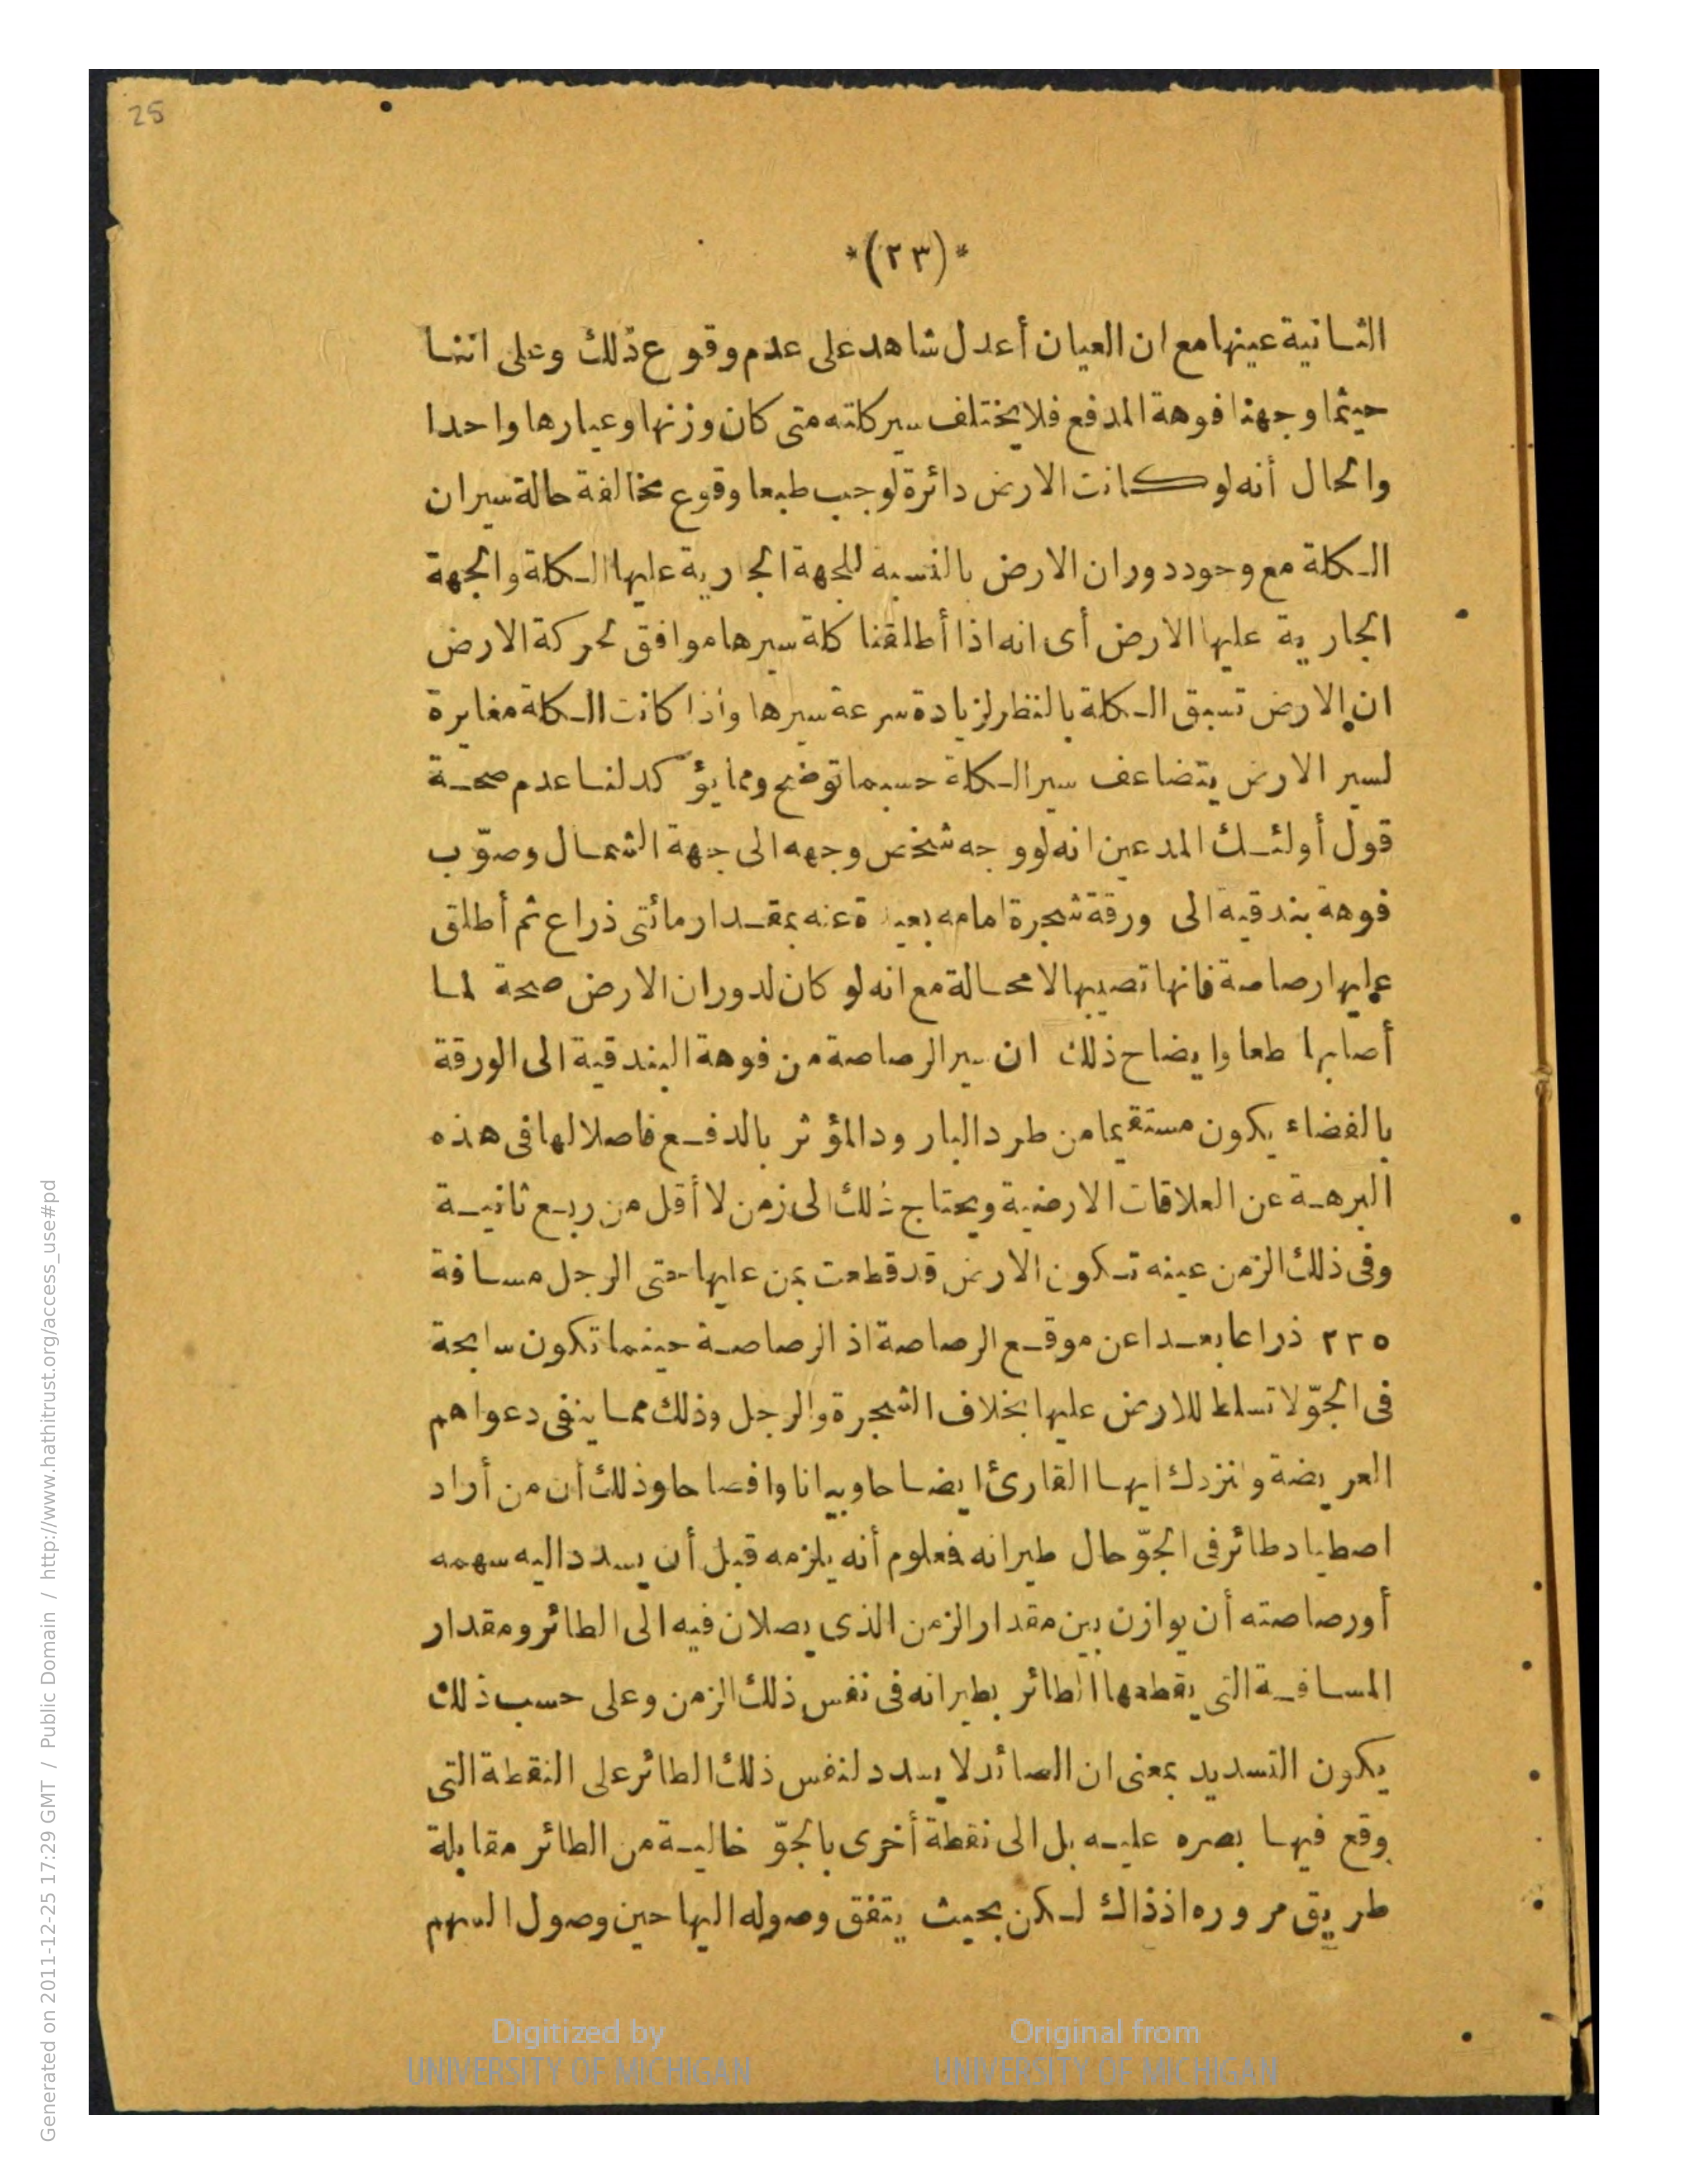 25
*(٢٣)*
الثانية عينها مع ان العيان أعدل شاهد على عدم وقوع ذلك وعلى اننا
حيثما وجهنا فوهة المدفع فلا يختلف سير كلته متى كان وزنها وعيارها واحدا
والحال أنه لو كانت الارض دائرة لوجب طبعا وقوع مخالفة حالة سيران
الكلة مع وجود دوران الارض بالنسبة للجهة الجارية عليها الكلة والجهة
الجارية عليها الارض أى انه اذا أطلقنا كلة سيرها موافق لحركة الارض
ان الارض تسبق الكلة بالنظر لزيادة سرعة سيرها واذا كانت الكلة مغايرة
لسير الارض يتضاعف سير الكلة حسبما توضح ومما يؤكد لنا عدم صحة
قول أولئك المدعين انه لو وجه شخص وجهه الى جهة الشمال وصوّب
فوهة بندقية الى ورقة شجرة امامه بعيدة عنه بمقدار مائتى ذراع ثم أطلق
عليها رصاصة فانها تصيبها لا محالة مع انه لو كان لدوران الارض صحة لما
أصابها طعا وايضاح ذلك ان سير الرصاصة من فوهة البندقية الى الورقة
بالفضاء يكون مستقيما من طرد البارود المؤثر بالدفع فاصلا لها فى هذه
البرهة عن العلاقات الارضية ويحتاج ذلك الى زمن لا أقل من ربع ثانية
وفى ذلك الزمن عينه تكون الارض قد قطعت بمن عليها حتى الرجل مسافة
٢٢٥ ذراعا بعدا عن موقع الرصاصة اذ الرصاصة حينما تكون سابحة
فى الجوّ لا تسلط للارض عليها بخلاف الشجرة والرجل وذلك مما ينفى دعواهم
العريضة وانزدك ايها القارئ ايضاحا وبيانا وافصاحا وذلك أن من أراد
اصطياد طائر فى الجوّ حال طيرانه فعلوم أنه يلزمه قبل أن يسدد اليه سهمه
أو رصاصته أن يوازن بين مقدار الزمن الذى يصلان فيه الى الطائر ومقدار
المسافة التى يقطعها الطائر بطيرانه فى نفس ذلك الزمن وعلى حسب ذلك
يكون التسديد بمعنى ان الصائد لا يسدد لنفس ذلك الطائر على النقطة التى
وقع فيها بصره عليه بل الى نقطة أخرى بالجوّ خالية من الطائر مقابلة
طريق مروره اذ ذاك لكن بحيث يتفق وصوله اليها حين وصول السهم
Digitized by
UNIVERSITY OF MICHIGAN
Original from
UNIVERSITY OF MICHIGAN
Generated on 2011-12-25 17:29 GMT / Public Domain / http://www.hathitrust.org/access_use#pd